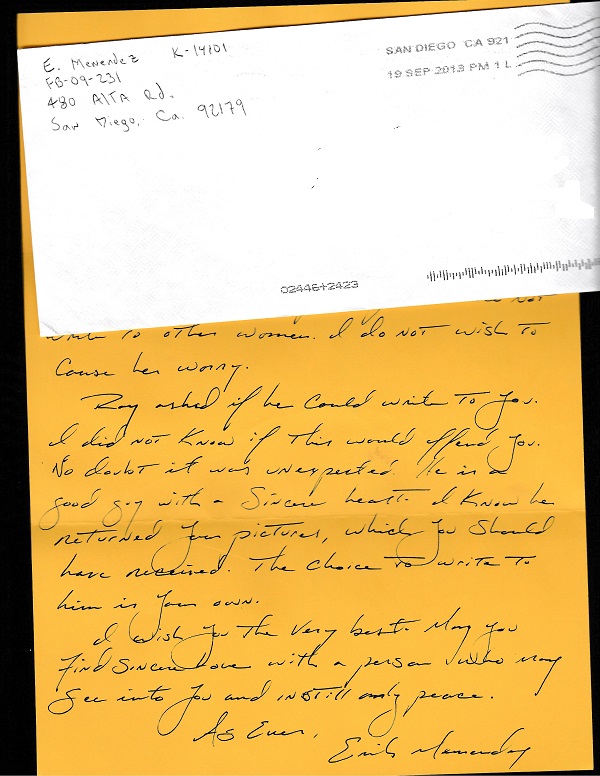 E. Menendez K-14101
FB-09-231
480 AlTA Rd.
San Diego, Ca. 92179
SAN DIEGO CA 921
19 SEP 2013 PM 1 L
0244612423
not
write to other women. I do not wish to
Cause her worry.
Roy asked if he could write to you.
I did not know if this would offend you.
No doubt it was unexpected. He is a
good guy with a sincere heart. I know he
returned your pictures, which you should
have received. The choice to write to
him is your own.
I wish you the very best. May you
find sincere love with a person who may
see into you and instill only peace.
As Ever,
Erik Menendez